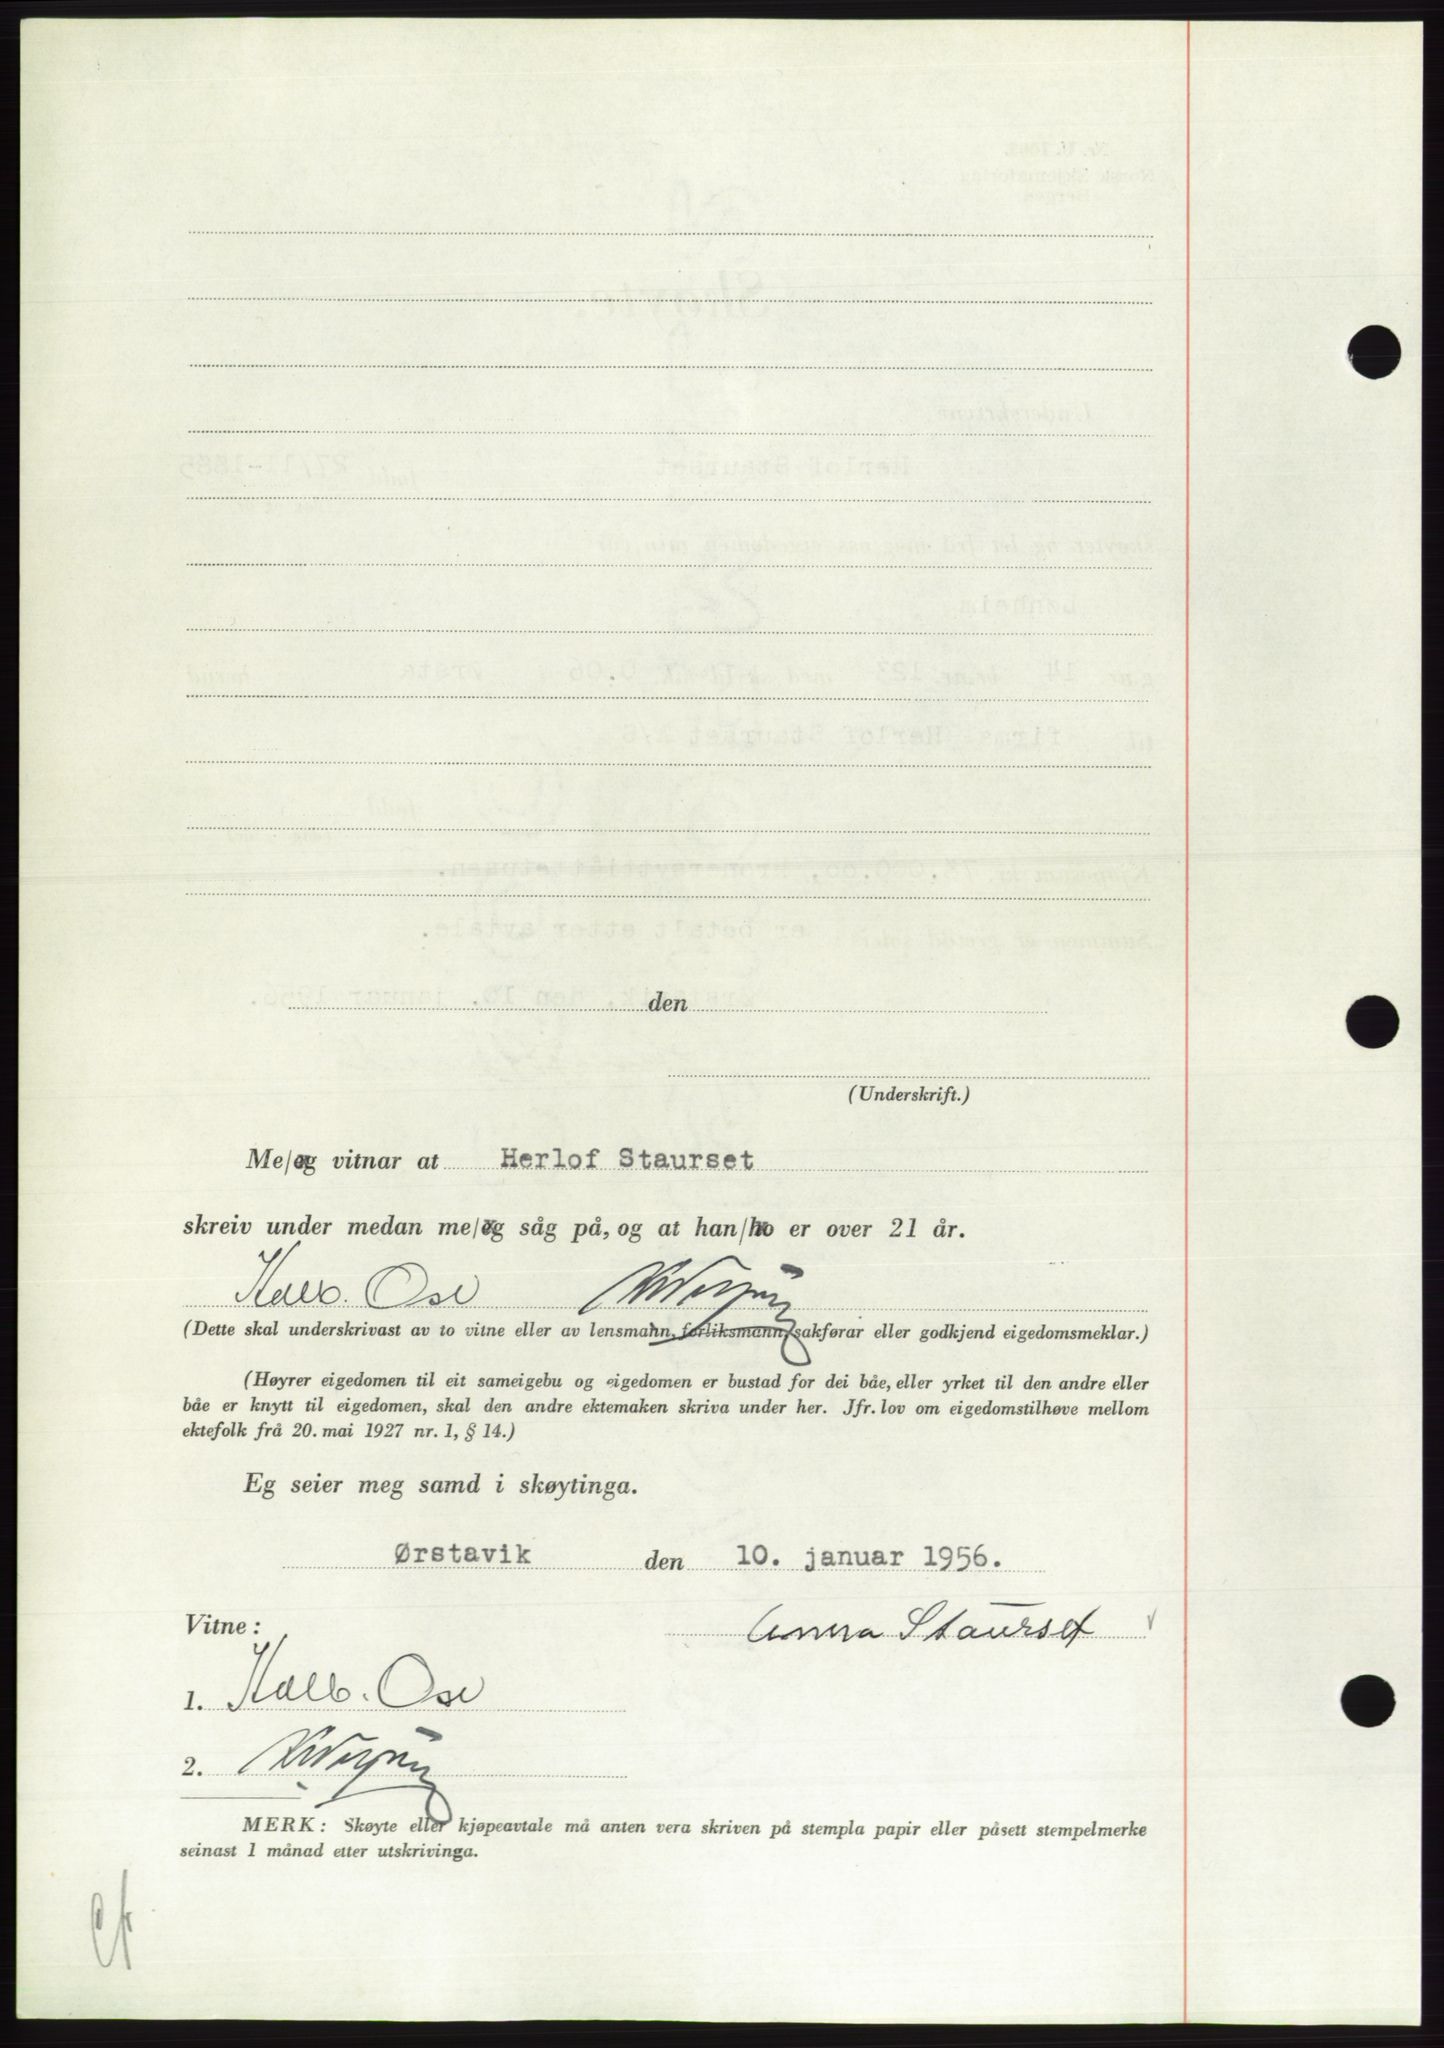 den
(Underskrift.)
Me/eg vitnar at Herlof Staurset
skreiv under medan me/eg såg på, og at han/ho er over 21 år.
Kalb. Ose
(Dette skal underskrivast av to vitne eller av lensmann, forliksmann, sakførar eller godkjend eigedomsmeklar.)
(Høyrer eigedomen til eit sameigebu og eigedomen er bustad for dei båe, eller yrket til den andre eller
båe er knytt til eigedomen, skal den andre ektemaken skriva under her. Jfr. lov om eigedomstilhøve mellom
ektefolk frå 20. mai 1927 nr. 1, § 14.)
Eg seier meg samd i skøytinga.
Ørstavik den 10. januar 1956.
Vitne: Anna Staurset
1. Kalb. Ose
2.
MERK: Skøyte eller kjøpeavtale må anten vera skriven på stempla papir eller påsett stempelmerke
seinast 1 månad etter utskrivinga.